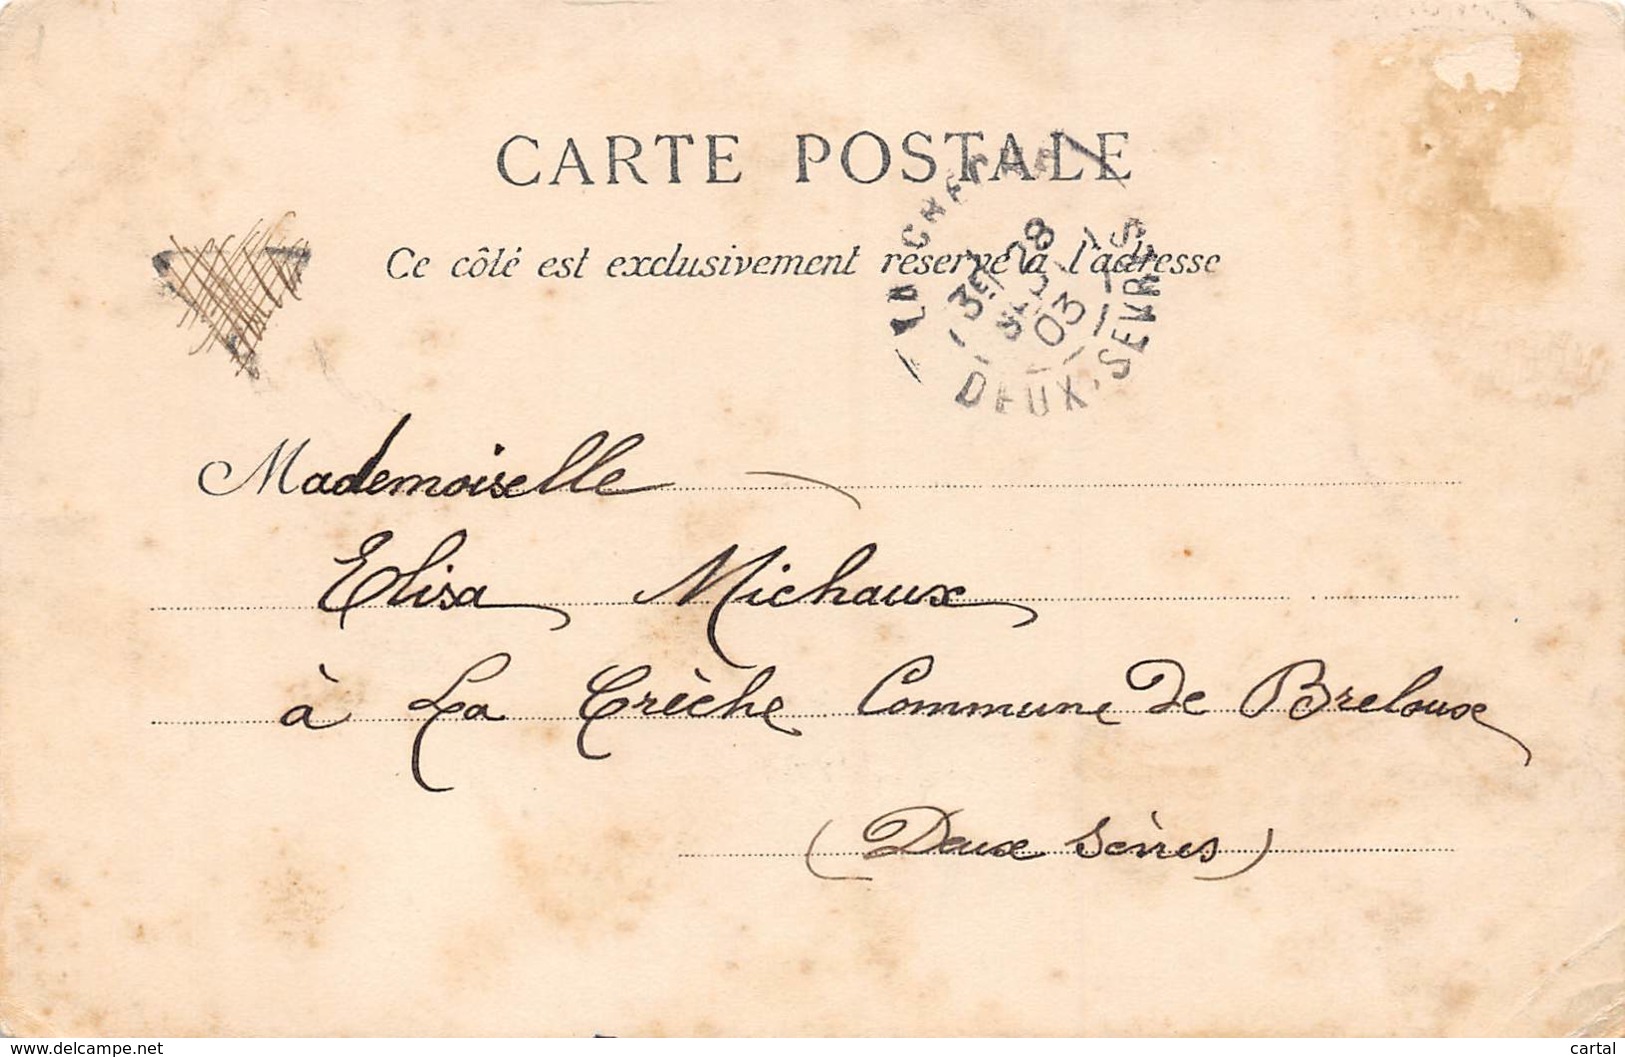 CARTE POSTALE
Ce côté est exclusivement réservé à l'adresse
LA CRECHE
3E 28
03
DEUX-SEVRES
Mademoiselle
Elisa Michaux
à La Crèche Commune de Breloux
(Deux Sèvres)
www.delcampe.net
cartal